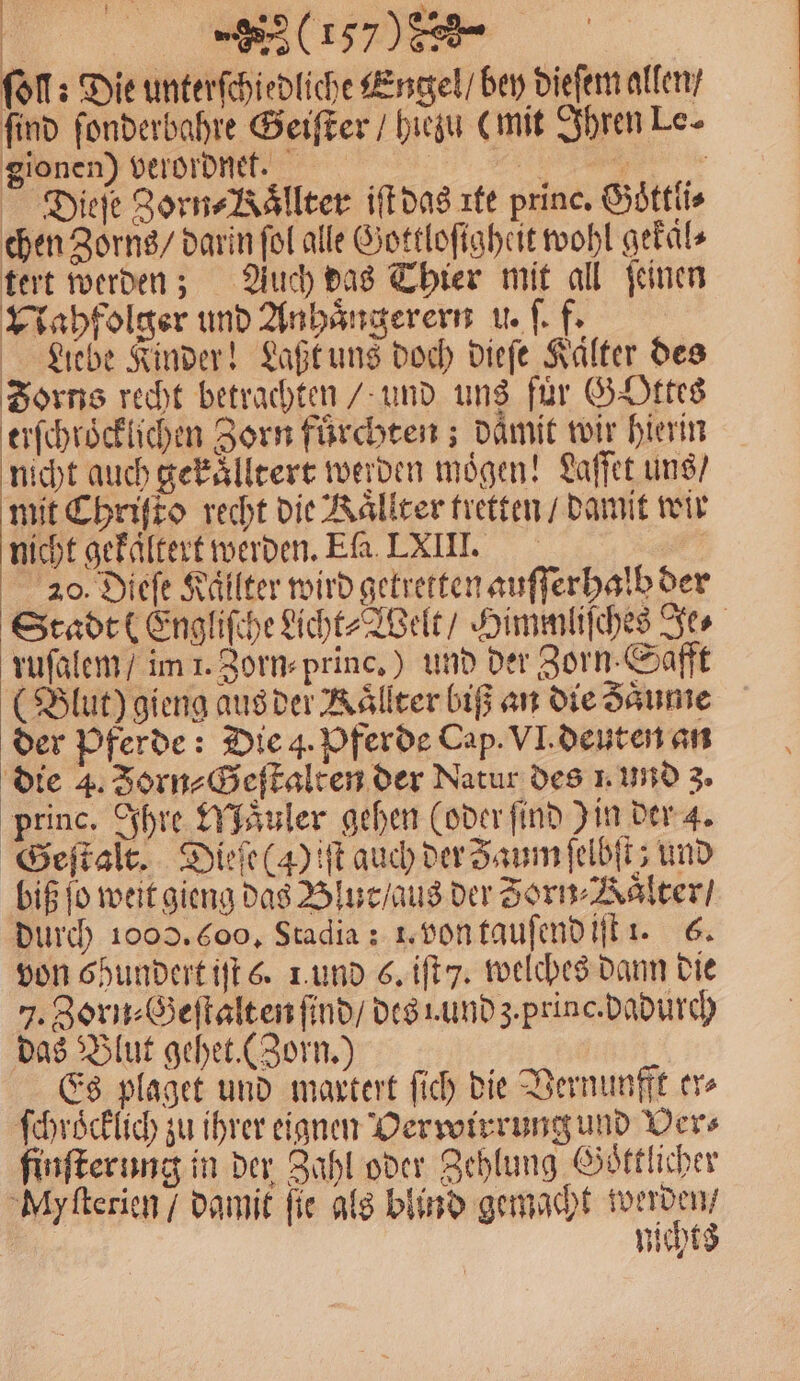 (157)
ſoll: Die unterſchiedliche Engel/ bey dieſem allen/
ſind ſonderbahre Geiſter / hiezu (mit Ihren Le-
gionen) verordnet.
Dieſe Zorn-Kaͤllter iſt das 1te princ. Goͤttli-
chen Zorns/ darin ſol alle Gottloſigheit wohl gekaͤl-
tert werden; Auch das Thier mit all ſeinen
Nahfolger und Anhaͤngerern u. ſ. f.
Liebe Kinder! Laßt uns doch dieſe Kaͤlter des
Zorns recht betrachten / und uns fuͤr GOttes
erſchroͤcklichen Zorn fuͤrchten; daͤmit wir hierin
nicht auch gekaͤlltert werden moͤgen! Laſſet uns/
mit Chriſto recht die Kaͤllter tretten / damit wir
nicht gekaͤltert werden. Eſa. LXIII.
20. Dieſe Kaͤllter wird getretten auſſerhalb der
Stadt (Engliſche Licht-Welt/ Himmliſches Je-
ruſalem/ im 1. Zorn-princ.) und der Zorn-Safft
(Blut) gieng aus der Kaͤllter biß an die Zaͤume
der Pferde: Die 4. Pferde Cap. VI. deuten an
die 4. Zorn-Geſtalten der Natur des 1. und 3.
princ. Ihre Maͤuler gehen (oder ſind) in der 4.
Geſtalt. Dieſe (4) iſt auch der Zaum ſelbſt; und
biß ſo weit gieng das Blut/aus der Zorn-Kaͤlter/
durch 1000.600. Stadia: 1. von tauſend iſt 1. 6.
von 6hundert iſt 6. 1 und 6. iſt 7. welches dann die
7. Zorn-Geſtalten ſind/ des 1. und 3. princ. dadurch
das Blut gehet. (Zorn.)
Es plaget und martert ſich die Vernunfft er-
ſchroͤcklich zu ihrer eignen Verwirrung und Ver-
finſterung in der Zahl oder Zehlung Goͤttlicher
Myſterien / damit ſie als blind gemacht werden/
nichts